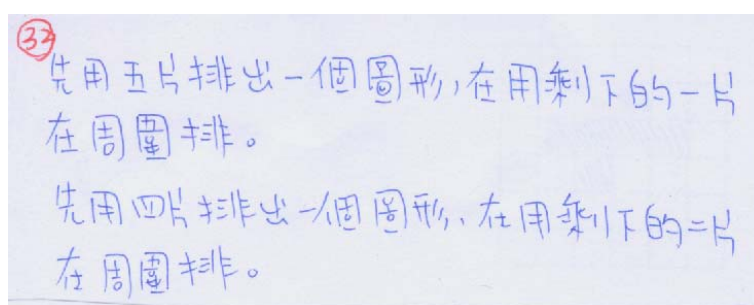 32
先用五片排出一個圖形,在用剩下的一片
在周圍排。
先用四片排出一個圖形,在用剩下的二片
在周圍排。